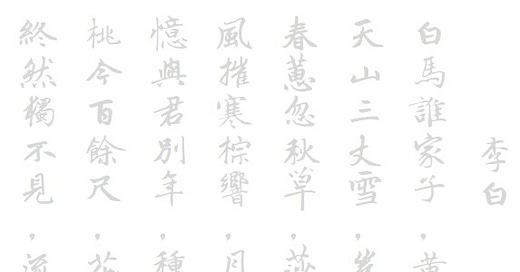 李白
白馬誰家子，
天山三丈雪，
春蕙忽秋草，莎
風摧寒棕響，月
憶與君別年，種
桃今百餘尺，花
終然獨不見，流